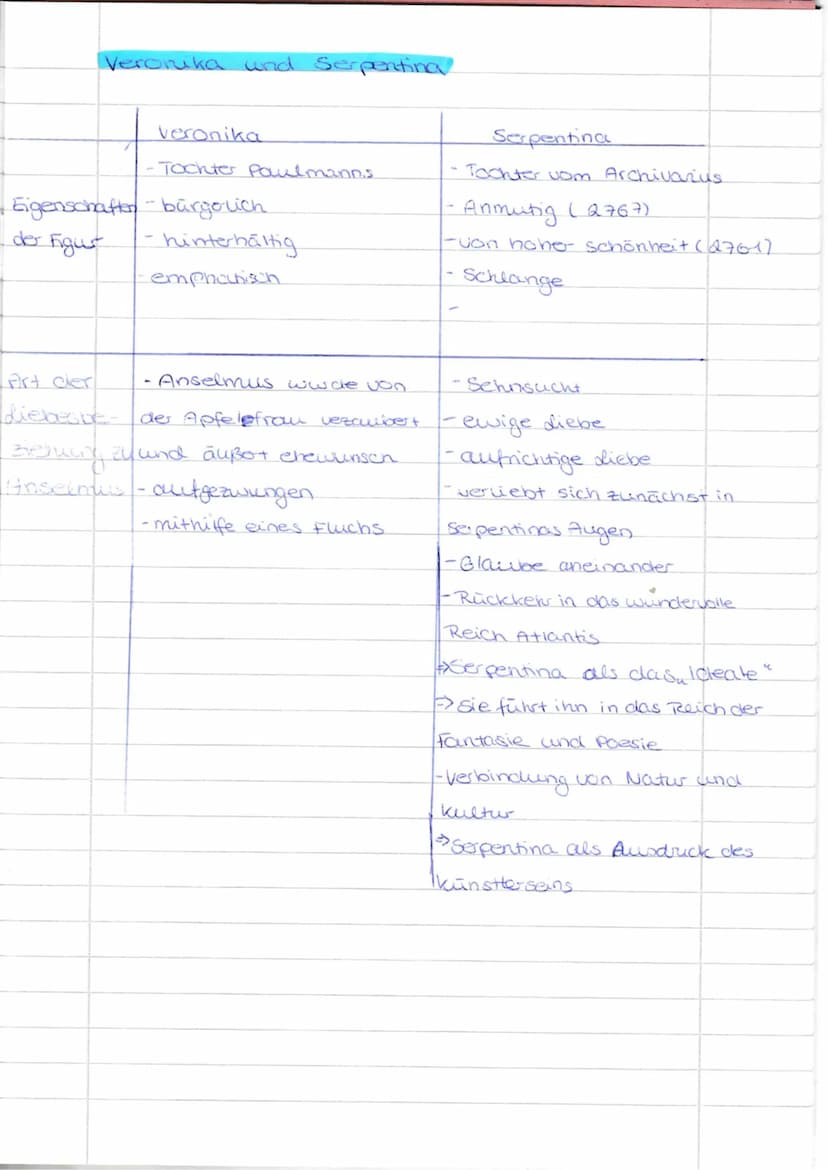 Veronika und Serpentina
Veronika
Serpentina
Eigenschaften
der Figur
- Tochter Paulmanns
- bürgerlich
- hinterhältig
- emphatisch
- Tochter vom Archivarius
- Anmutig (2767)
- von hoher schönheit (2761)
- Schlange
-
Art der
Liebesbe-
ziehung zu
Anselmus
- Anselmus wurde von
der Apfelefrau verzaubert
und äußert ehewunsch
- aufgezwungen
- mithilfe eines Fluchs
- Sehnsucht
- ewige Liebe
- aufrichtige Liebe
- verliebt sich zunächst in
Serpentinas Augen
- Glaube aneinander
- Rückkehr in das wundervolle
Reich Atlantis
⇒ Serpentina als das „Ideale“
⇒ Sie führt ihn in das Reich der
Fantasie und Poesie
- Verbindung von Natur und
Kultur
⇒ Serpentina als Ausdruck des
Künstlerseins